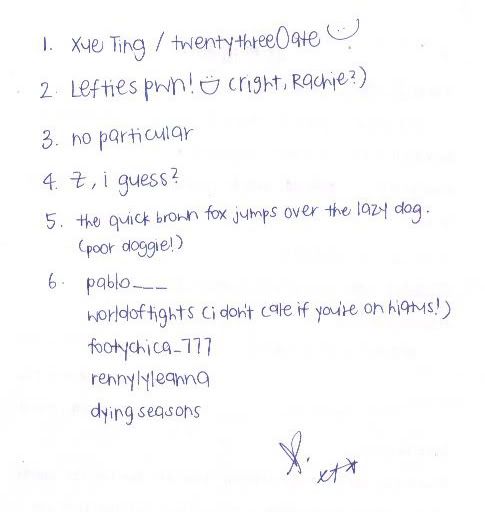 1. Xue Ting / twentythree0ate
2. Lefties pwn! (right, Rachie?)
3. no particular
4. Z, i guess?
5. the quick brown fox jumps over the lazy dog.
(poor doggie!)
6. pablo___
worldoftights (i don't care if you're on hiatus!)
footychica_777
rennylyleanna
dyingseasons